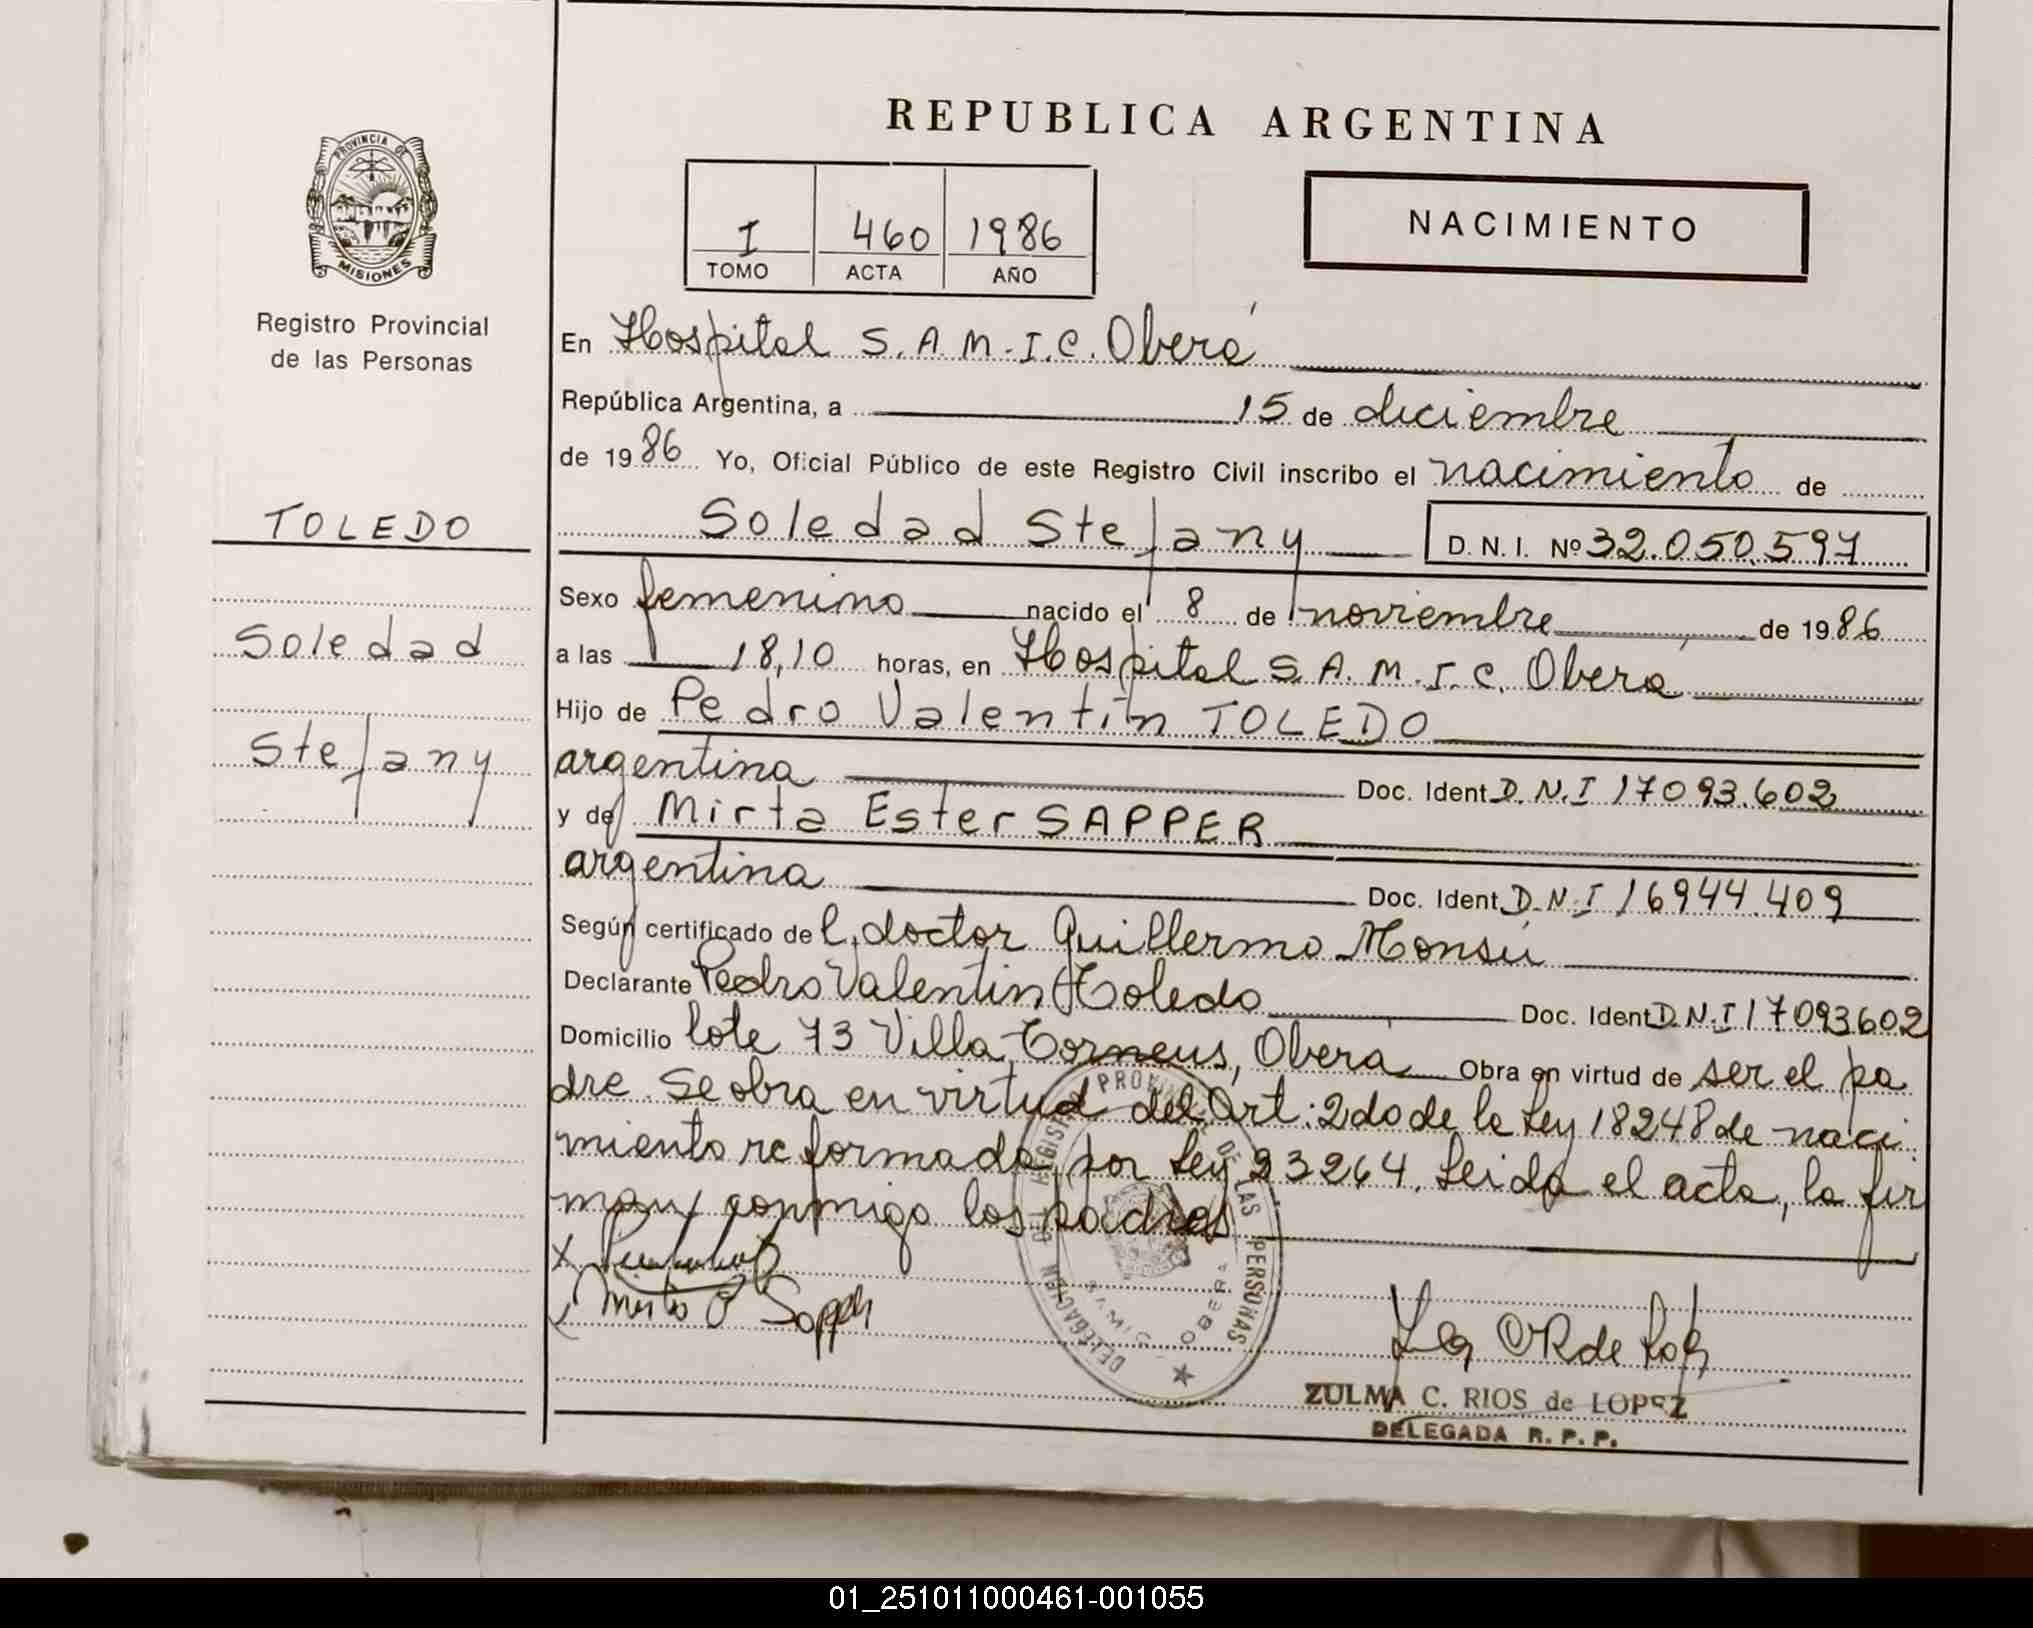 REPUBLICA ARGENTINA
PROVINCIA DE
MISIONES
I 460 1986
TOMO ACTA AÑO
NACIMIENTO
Registro Provincial
de las Personas
TOLEDO
Soledad
Stefany
En Hospital S.A.M.I.C. Oberá
República Argentina, a 15 de diciembre
de 1986 Yo, Oficial Público de este Registro Civil inscribo el nacimiento de
Soledad Stefany D.N.I. Nº 32.050.597
Sexo femenino nacido el 8 de noviembre de 1986
a las 18,10 horas, en Hospital S.A.M.I.C. Oberá
Hijo de Pedro Valentín TOLEDO
argentina Doc. Ident D.N.I 17093.602
y de Mirta Ester SAPPER
argentina Doc. Ident D.N.I 16944.409
Según certificado del doctor Guillermo Monsú
Declarante Pedro Valentín Toledo Doc. Ident D.N.I 17093602
Domicilio lote 73 Villa Torneus, Oberá Obra en virtud de ser el pa
dre. Se obra en virtud del Art: 2do de la Ley 18248 de naci
miento reformada por Ley 23264. Leida el acta, la fir
man conmigo los padres
X
Mirta E Sapper
DELEGACION REGISTRO PROVINCIAL DE LAS PERSONAS
SAMIC - OBERA
ZULMA C. RIOS de LOPEZ
DELEGADA R. P. P.
01_251011000461-001055